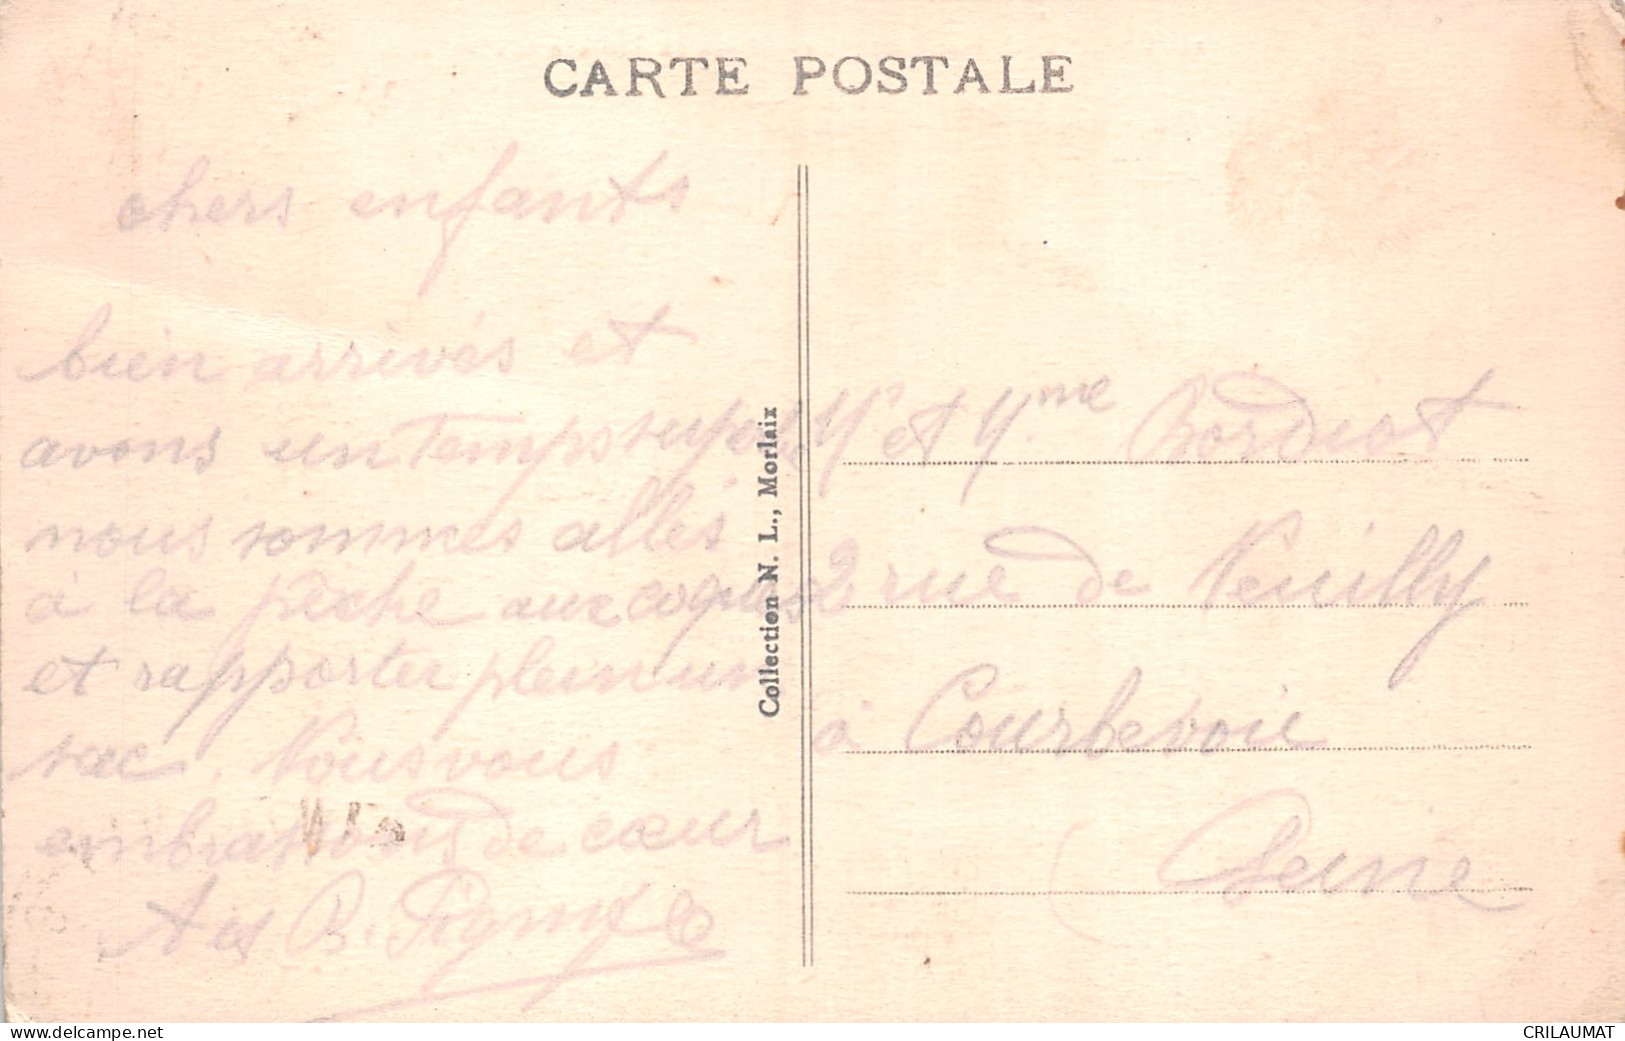 CARTE POSTALE
chers enfants
bien arrivés et
avons un temps superbe
nous sommes allés
à la pêche aux coques
et rapporter plein un
sac. Nous vous
embrassons de cœur
A et B.
Collection N. L., Morlaix
Mr et Mme Bordist
2 rue de Neuilly
à Courbevoie
(Seine
www.delcampe.net
CRILAUMAT